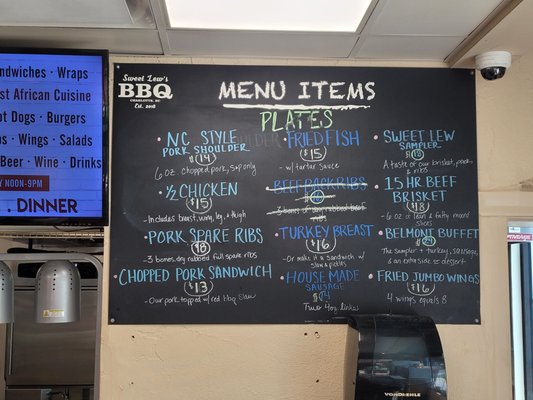 ndwiches · Wraps
st African Cuisine
ot Dogs · Burgers
s · Wings · Salads
Beer · Wine · Drinks
Y NOON-9PM
. DINNER
Sweet Lew's
BBQ
CHARLOTTE, NC
Est. 2018
MENU ITEMS
PLATES
• NC STYLE
PORK SHOULDER
$14
6 oz chopped pork, sup only
• ½ CHICKEN
$15
- Includes breast, wing, leg & thigh
• PORK SPARE RIBS
- 3 bones, dry rubbed full spare ribs
• CHOPPED PORK SANDWICH
$13
- Our pork topped w/ red bbq slaw
• FRIED FISH
$15
- w/ tartar sauce
BEEF BACK RIBS
3 bones of dry rubbed beef
• TURKEY BREAST
$16
- Or make it a sandwich w/
slaw & pickles
• HOUSE MADE
SAUSAGE
$14
Two 4oz links
• SWEET LEW
SAMPLER
A taste of our brisket, pork
& ribs
• 15 HR BEEF
BRISKET
- 6 oz of lean & fatty mixed
slices
• BELMONT BUFFET
- The sampler + turkey, sausage
& an extra side or dessert
• FRIED JUMBO WINGS
$16
4 wings equals 8